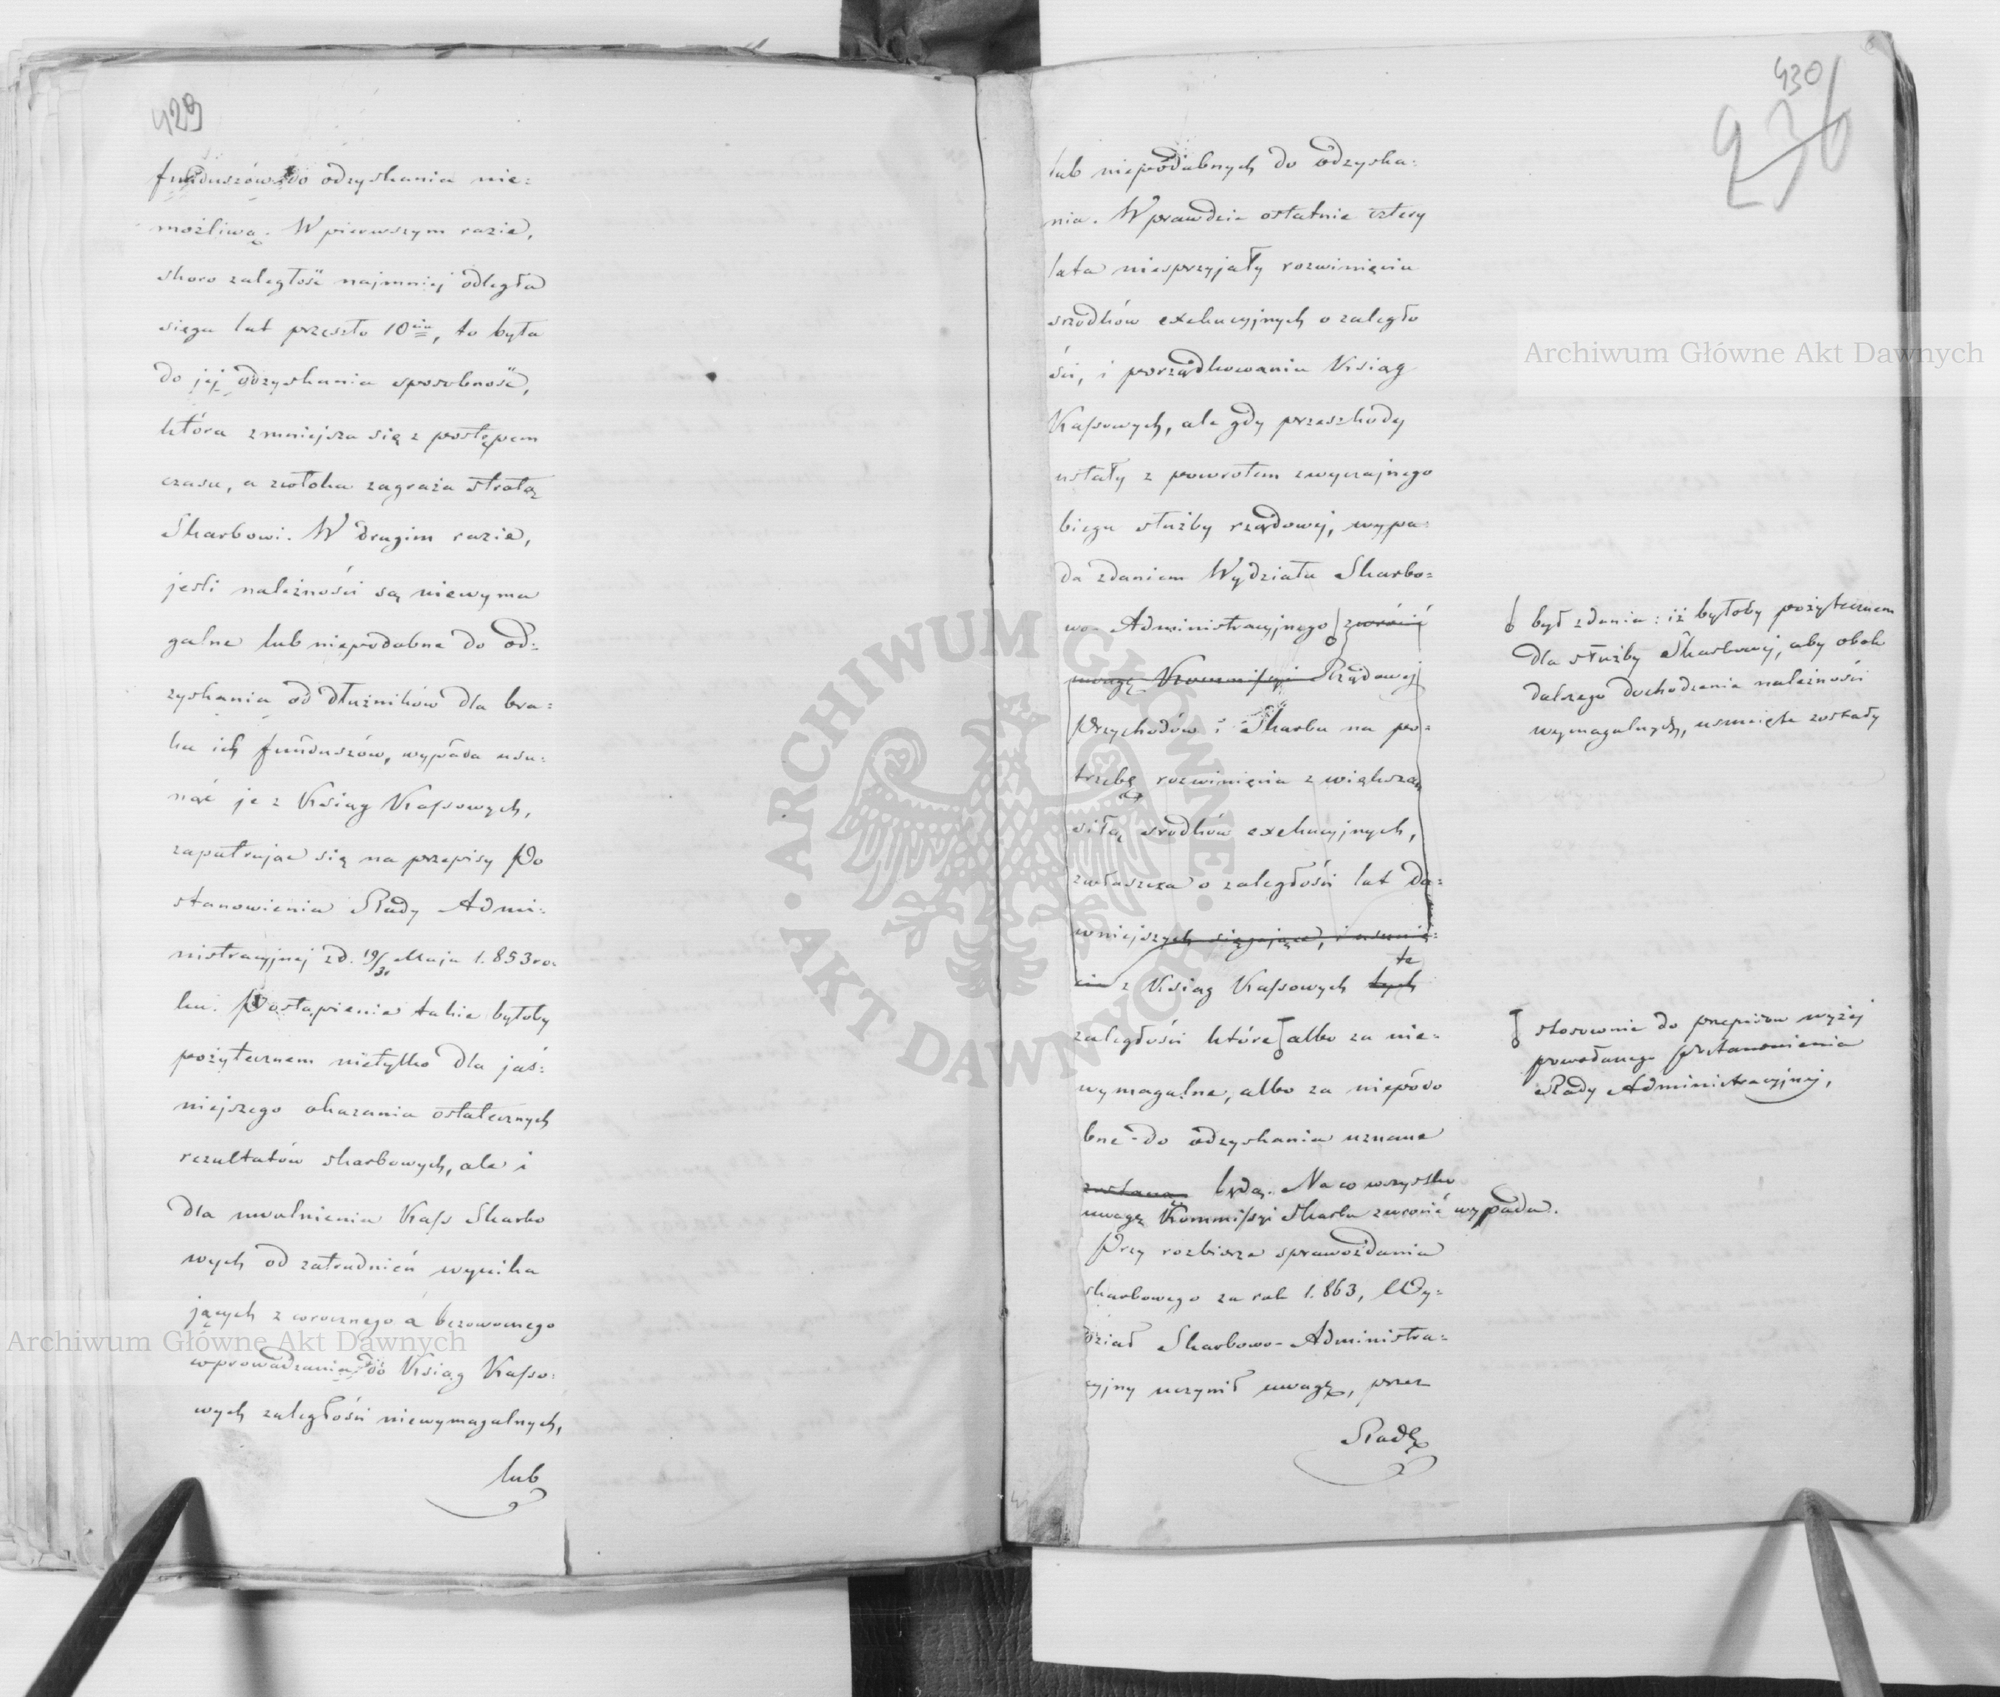 429
funduszów do odzyskania nie=
możliwą. W pierwszym razie,
skoro zaległość najmniej odległa
sięga lat przeszło 10iu, to była
do jej odzyskania sposobność,
która zmniejsza się z postępem
czasu, a zwłoka zagraża stratą
Skarbowi. W drugim razie,
jeśli należności są niewyma
galne lub niepodobne do od=
zyskania od dłużników dla bra=
ku ich funduszów, wypada usu=
nąć je z Ksiąg Kassowych,
zapatrując się na przepisy Po
stanowienia Rady Admi=
nistracyjnej z d. 19/31 Maja 1.853 ro=
ku. Postąpienie takie byłoby
pożytecznem nietylko dla jaś=
niejszego okazania ostatecznych
rezultatów skarbowych, ale i
dla uwolnienia Kass Skarbo
wych od zatrudnień wynika
jących z corocznego a bezowocnego
wprowadzania do Ksiąg Kasso=
wych zaległości niewymagalnych,
lub
430
236
lub niepodobnych do odzyska=
nia. Wprawdzie ostatnie cztery
lata niesprzyjały rozwinięciu
srodków exekucyjnych o zaległo
ści, i porządkowaniu Ksiąg
Kassowych, ale gdy przeszkody
ustały z powrotem zwyczajnego
biegu służby rządowej, wypa=
da zdaniem Wydziału Skarbo=
wo-Administracyjnego zwrócić
uwagę Kommissyi Rządowej
Przychodów i Skarbu na po=
trzebę rozwinięcia z większą
siłą srodków exekucyjnych,
zwłaszcza o zaległości lat da=
wniejszych sięgające, i usunię=
cie z Ksiąg Kassowych tych
te
zaległości które albo za nie=
wymagalne, albo za niepodo
bne do odzyskania uznane
zostaną będą. Na co wszystko
uwagę Kommissyi Skarbu zwrócić wypada.
Przy rozbiorze sprawozdania
skarbowego za rok 1.863, Wy=
dział Skarbowo-Administra=
cyjny uczynił uwagę, przez
Radę
był zdania: iż byłoby pożytecznem
dla służby Skarbowej, aby obok
dalszego dochodzenia należności
wymagalnych, usunięte zostały
stosownie do przepisów wyżej
powołanego Postanowienia
Rady Administracyjnej,
Archiwum Główne Akt Dawnych
Archiwum Główne Akt Dawnych
ARCHIWUM GŁÓWNE AKT DAWNYCH